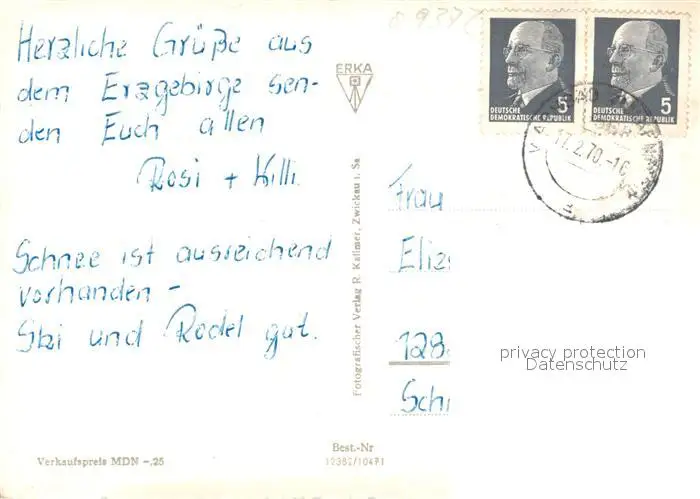 Herzliche Grüße aus
dem Erzgebirge sen-
den Euch allen
Rosi + Killi
Schnee ist ausreichend
vorhanden -
Ski und Rodel gut.
Verkaufspreis MDN -,25
ERKA
Fotografischer Verlag R. Kallmer, Zwickau i. Sa
Best.-Nr
12382/10471
5
DEUTSCHE
DEMOKRATISCHE REPUBLIK
5
DEUTSCHE
DEMOKRATISCHE REPUBLIK
17.2.70
Frau
Eliz
128
Schi
privacy protection
Datenschutz